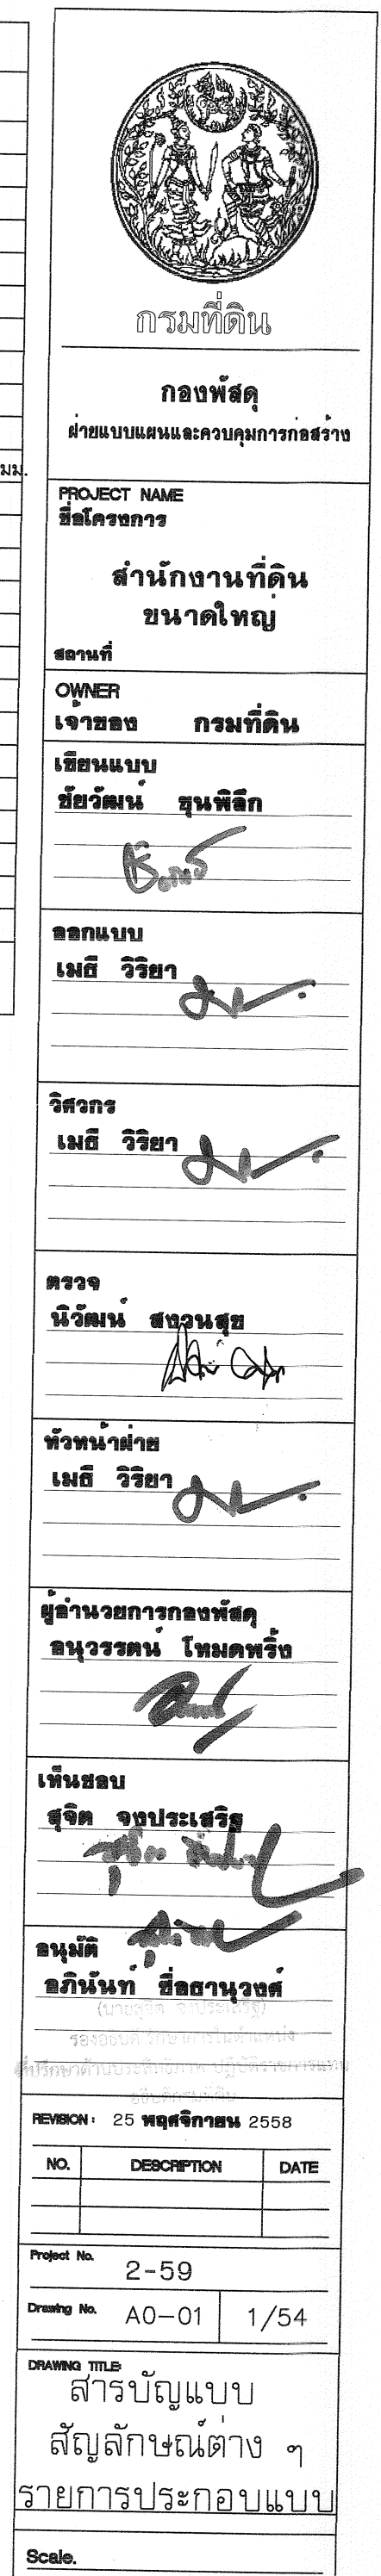 มม.
กรมที่ดิน
กองพัสดุ
ฝ่ายแบบแผนและควบคุมการก่อสร้าง
PROJECT NAME
ชื่อโครงการ
สำนักงานที่ดิน
ขนาดใหญ่
สถานที่
OWNER
เจ้าของ กรมที่ดิน
เขียนแบบ
ชัยวัฒน์ ขุนพิลึก
ออกแบบ
เมธี วิริยา
วิศวกร
เมธี วิริยา
ตรวจ
นิวัฒน์ สงวนสุข
หัวหน้าฝ่าย
เมธี วิริยา
ผู้อำนวยการกองพัสดุ
อนุวรรตน์ โหมดพริ้ง
เห็นชอบ
สุจิต จงประเสริฐ
อนุมัติ
อภินันท์ ซื่อธานุวงศ์
(นายสุจิต จงประเสริฐ)
รองอธิบดี รักษาการในตำแหน่ง
ที่ปรึกษาด้านประสิทธิภาพ ปฏิบัติราชการแทน
อธิบดีกรมที่ดิน
REVISION : 25 พฤศจิกายน 2558
NO. DESCRIPTION DATE
Project No. 2-59
Drawing No. A0-01 1/54
DRAWING TITLE:
สารบัญแบบ
สัญลักษณ์ต่าง ๆ
รายการประกอบแบบ
Scale.